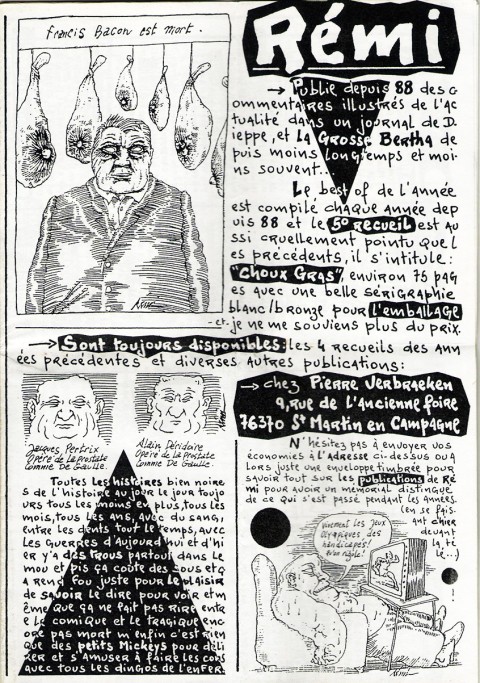 Francis Bacon est mort.
Rémi
→ Publie depuis 88 des c
ommentaires illustrés de l'ac
tualité dans un journal de D
ieppe, et La Grosse Bertha de
puis moins longtemps et moi-
ns souvent...
Le best of de l'année
est compilé chaque année dep
uis 88 et le 5e recueil est au
ssi cruellement pointu que l
es précédents, il s'intitule:
"Choux Gras", environ 75 pag
es avec une belle sérigraphie
blanc/bronze pour l'emballage
-et- je ne me souviens plus du prix.
→ Sont toujours disponibles: les 4 recueils des ann
ées précédentes et diverses autres publications:
→ chez Pierre Verbraeken
9, rue de l'ancienne foire
76370 St Martin en Campagne
Jacques Pentrix
Opéré de la Prostate
Comme De Gaulle.
Alain Péridoire
Opéré de la Prostate
Comme De Gaulle.
N'hésitez pas à envoyer vos
économies à l'Adresse ci-dessus ou a
lors juste une enveloppe timbrée pour
savoir tout sur les publications de Ré
mi pour avoir un mémorial distingué
de ce qui s'est passé pendant les années.
(en se fais-
ant chier
devant
la té
lé...)
vivement les jeux
olympiques des
handicapés
qu'on rigole!
Toutes les histoires bien noire
s de l'histoire au jour le jour toujo
urs tous les moins en plus, tous les
mois, tous les ans, avec du sang,
entre les dents tout le temps, avec
les Guerres d'Aujourd'hui et d'hi
er y'a des trous partout dans le
mou et pis ça coûte des sous et ç
a rend fou juste pour le plaisir
de savoir le dire pour voir et m
ême que ça ne fait pas rire entr
e le comique et le tragique enc
ore pas mort m'enfin c'est rien
que des petits Mickeys pour déli
rer et s'amuser à faire les cons
avec tous les dingos de l'enfer.
Rémi